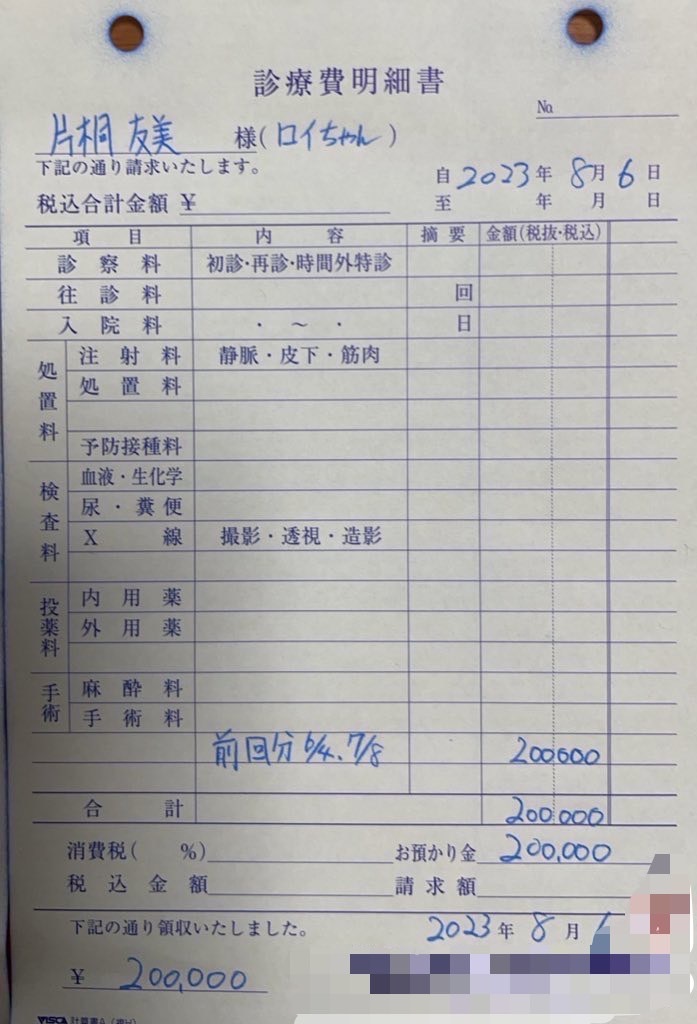 診療費明細書
No.
片桐 友美 様(ロイちゃん)
下記の通り請求いたします。
自 2023 年 8 月 6 日
税込合計金額 ¥
至 年 月 日
項目 内容 摘要 金額(税抜・税込)
診察料 初診・再診・時間外特診
往診料 回
入院料 ・ ~ ・ 日
処置料
注射料 静脈・皮下・筋肉
処置料
予防接種料
検査料
血液・生化学
尿・糞便
X線 撮影・透視・造影
投薬料
内用薬
外用薬
手術
麻酔料
手術料
前回分 6/4、7/8 200000
合計 200,000
消費税( %) お預かり金 200,000
税込金額 請求額
下記の通り領収いたしました。 2023 年 8 月
¥ 200,000
VISCA 計算書A